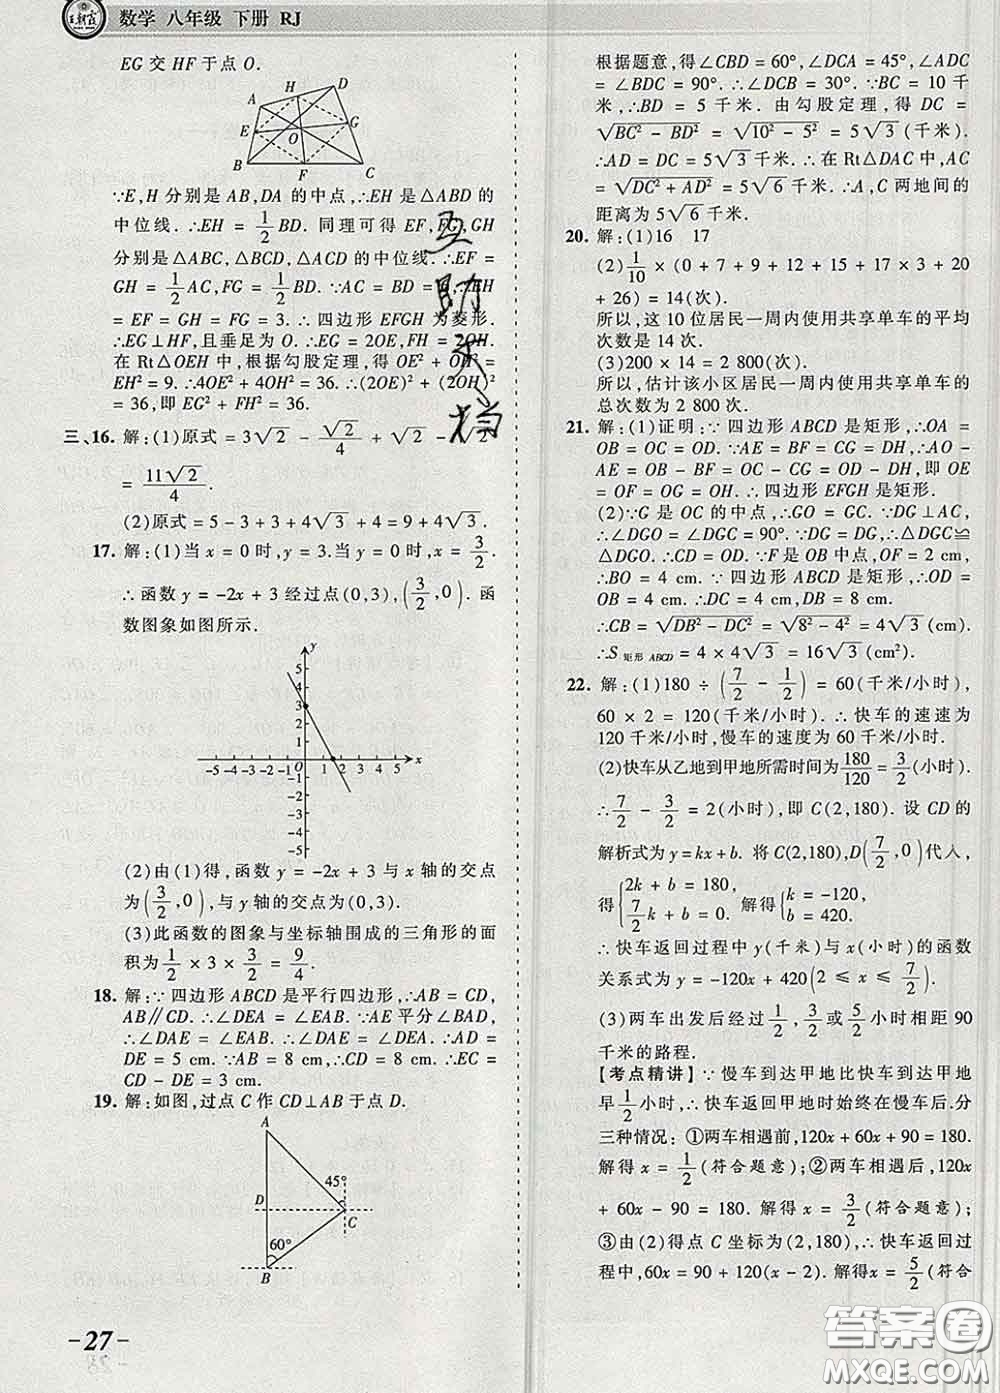 王朝霞
数学 八年级 下册 RJ
EG 交 HF 于点 O.
H
D
A
E
G
O
B
F
C
∵E,H 分别是 AB,DA 的中点,∴EH 是 △ABD 的
中位线. ∴EH = 1/2 BD. 同理可得 EF,FG,GH
分别是 △ABC, △BCD, △ACD 的中位线. ∴EF =
GH = 1/2 AC,FG = 1/2 BD. ∵AC = BD = 6,∴EH
= EF = GH = FG = 3. ∴ 四边形 EFGH 为菱形.
∴EG⊥HF,且垂足为 O. ∴EG = 2OE,FH = 2OH.
在 Rt△OEH 中,根据勾股定理,得 OE² + OH² =
EH² = 9. ∴4OE² + 4OH² = 36. ∴(2OE)² + (2OH)²
= 36,即 EG² + FH² = 36.
三、16. 解:(1)原式 = 3√2 − √2/4 + √2 − √2
= 11√2/4.
(2)原式 = 5 − 3 + 3 + 4√3 + 4 = 9 + 4√3.
17. 解:(1)当 x = 0 时,y = 3.当 y = 0 时,x = 3/2.
∴ 函数 y = −2x + 3 经过点(0,3),(3/2,0). 函
数图象如图所示.
y
5
4
3
2
1
−5 −4 −3 −2 −1 O 1 2 3 4 5 x
−1
−2
−3
−4
−5
(2)由(1)得,函数 y = −2x + 3 与 x 轴的交点
为(3/2,0),与 y 轴的交点为(0,3).
(3)此函数的图象与坐标轴围成的三角形的面
积为 1/2 × 3 × 3/2 = 9/4.
18. 解:∵ 四边形 ABCD 是平行四边形,∴AB = CD,
AB∥CD. ∴∠DEA = ∠EAB. ∵AE 平分∠BAD,
∴∠DAE = ∠EAB. ∴∠DAE = ∠DEA. ∴AD =
DE = 5 cm. ∵AB = 8 cm,∴CD = 8 cm. ∴EC =
CD − DE = 3 cm.
19. 解:如图,过点 C 作 CD⊥AB 于点 D.
A
45°
D
C
60°
B
−27−
根据题意,得∠CBD = 60°,∠DCA = 45°,∠ADC
= ∠BDC = 90°. ∴∠DCB = 30°. ∵BC = 10 千
米,∴BD = 5 千米. 由勾股定理,得 DC =
√(BC² − BD²) = √(10² − 5²) = 5√3(千米).
∴AD = DC = 5√3 千米. ∴ 在 Rt△DAC 中,AC =
√(DC² + AD²) = 5√6 千米. ∴A,C 两地间的
距离为 5√6 千米.
20. 解:(1)16 17
(2)1/10 × (0 + 7 + 9 + 12 + 15 + 17 × 3 + 20
+ 26) = 14(次).
所以,这 10 位居民一周内使用共享单车的平均
次数是 14 次.
(3)200 × 14 = 2 800(次).
所以,估计该小区居民一周内使用共享单车的
总次数为 2 800 次.
21. 解:(1)证明:∵ 四边形 ABCD 是矩形,∴OA =
OB = OC = OD. ∵AE = BF = CG = DH,∴AO −
AE = OB − BF = OC − CG = OD − DH,即 OE
= OF = OG = OH. ∴ 四边形 EFGH 是矩形.
(2)∵G 是 OC 的中点,∴GO = GC. ∵DG⊥AC,
∴∠DGO = ∠DGC = 90°. ∵DG = DG,∴△DGC≌
△DGO. ∴CD = OD. ∵F 是 OB 中点,OF = 2 cm,
∴BO = 4 cm. ∵ 四边形 ABCD 是矩形,∴OD =
OB = 4 cm. ∴DC = 4 cm,DB = 8 cm.
∴CB = √(DB² − DC²) = √(8² − 4²) = 4√3 (cm).
∴S矩形ABCD = 4 × 4√3 = 16√3 (cm²).
22. 解:(1)180 ÷ (7/2 − 1/2) = 60(千米/小时),
60 × 2 = 120(千米/小时). ∴ 快车的速速为
120 千米/小时,慢车的速度为 60 千米/小时.
(2)快车从乙地到甲地所需时间为180/120 = 3/2(小时).
∴ 7/2 − 3/2 = 2(小时),即 C(2,180). 设 CD 的
解析式为 y = kx + b. 将 C(2,180),D(7/2,0)代入,
得{2k + b = 180, 7/2 k + b = 0. 解得{k = −120, b = 420.
∴ 快车返回过程中 y(千米)与 x(小时)的函数
关系式为 y = −120x + 420(2 ≤ x ≤ 7/2).
(3)两车出发后经过 1/2, 3/2 或 5/2 小时相距 90
千米的路程.
【考点精讲】∵ 慢车到达甲地比快车到达甲地
早 1/2 小时,∴ 快车返回甲地时始终在慢车后.分
三种情况:①两车相遇前,120x + 60x + 90 = 180.
解得 x = 1/2(符合题意);②两车相遇后,120x
+ 60x − 90 = 180. 解得 x = 3/2(符合题意);
③由(2)得点 C 坐标为(2,180),∴ 快车返回过
程中,60x = 90 + 120(x − 2). 解得 x = 5/2(符合
互助文档
答案圈
MXQE.COM